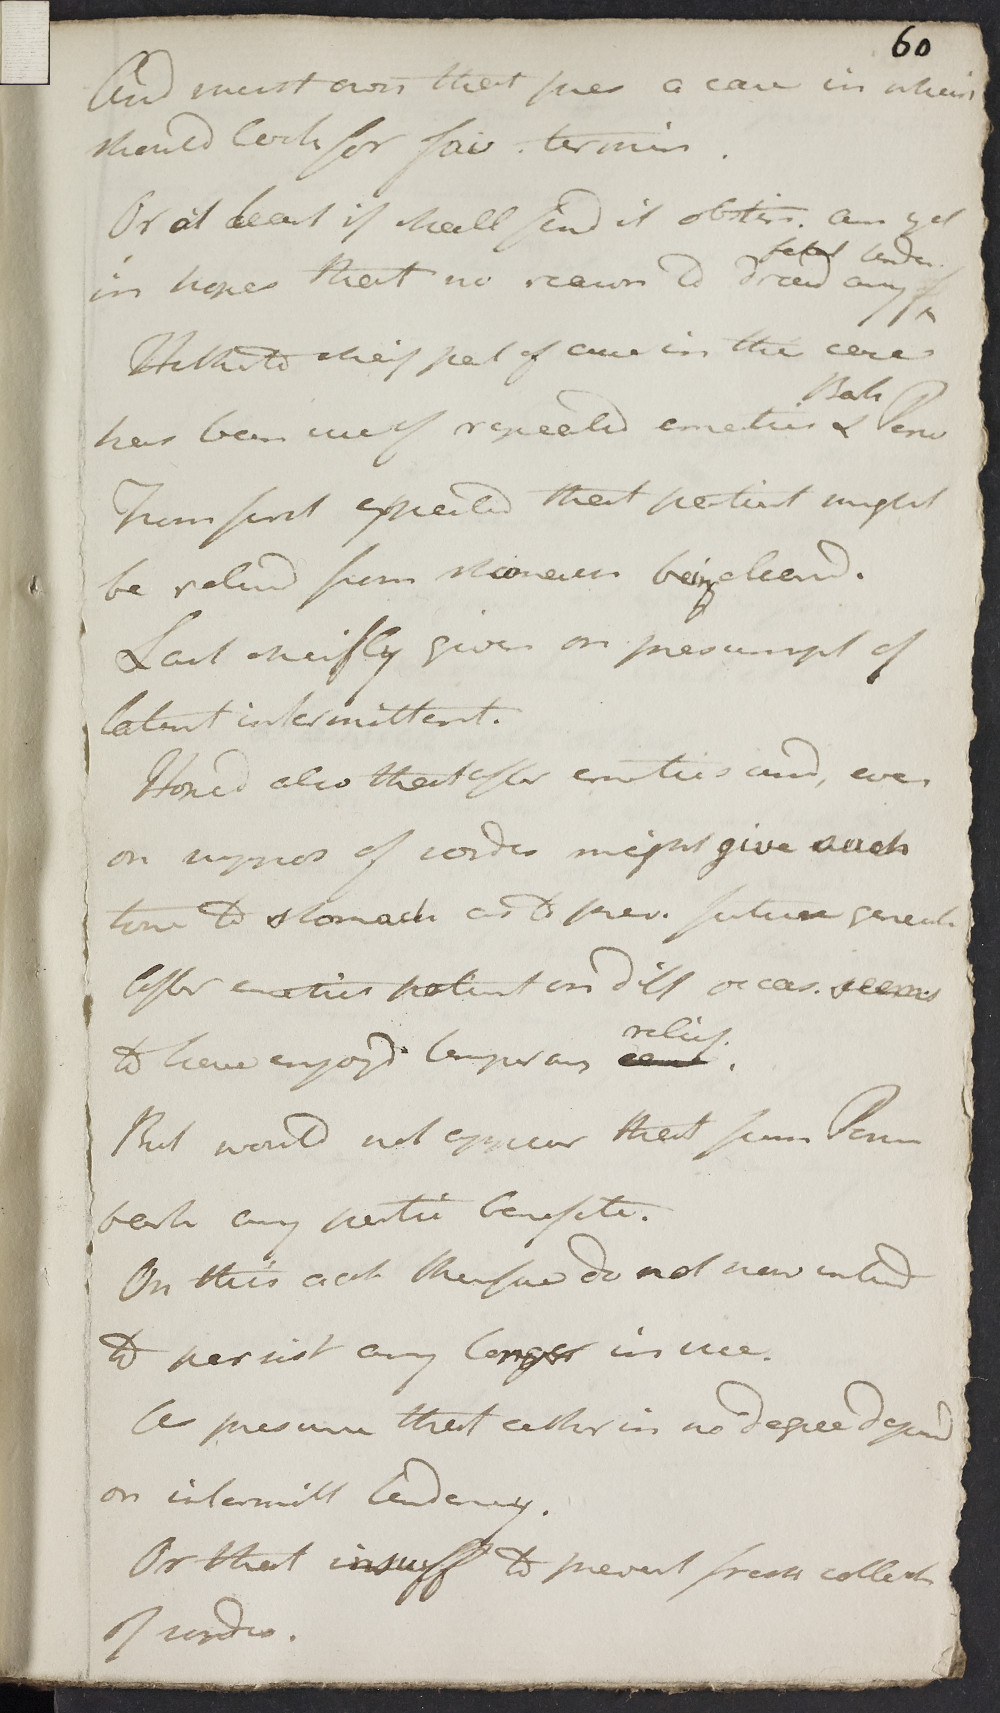 60
And must own that pres a case in which
should look for fav. termin.
Or at least if shall find it obstin. am yet
fatal tenden.
in hopes that no reason to dread any ^
Hitherto cheif pat of cure in the case
Bark
has been use of repeated emetics & Peruv
From first expected that patient might
be reliev'd from stomach being cleansd.
Last cheifly given on presumpt of
latent intermittent.
Hoped also that after emetics and, even
on suppos of sordes might give such
tone to stomach as to prev. future generat
After emetics patient on diff occas. seems
relief.
to have enjoyd temporary .
But would not appear that from Peruv
bark any partic benefite.
On this acct therefore do not now intend
to persist any longer in use.
As presume that either in no degree depend
on intermitt tendency.
Or that insuff to prevent fresh collect
of sordes.